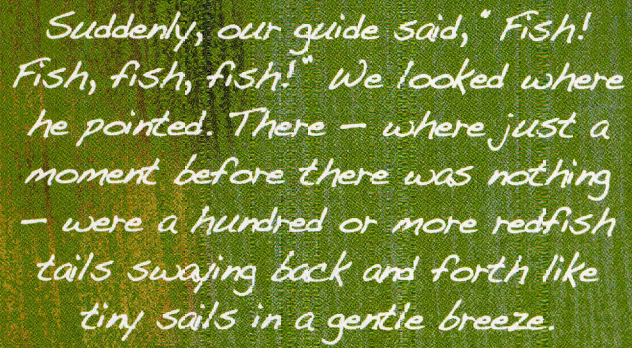 Suddenly, our guide said, "Fish!
Fish, fish, fish!" We looked where
he pointed. There – where just a
moment before there was nothing
– were a hundred or more redfish
tails swaying back and forth like
tiny sails in a gentle breeze.